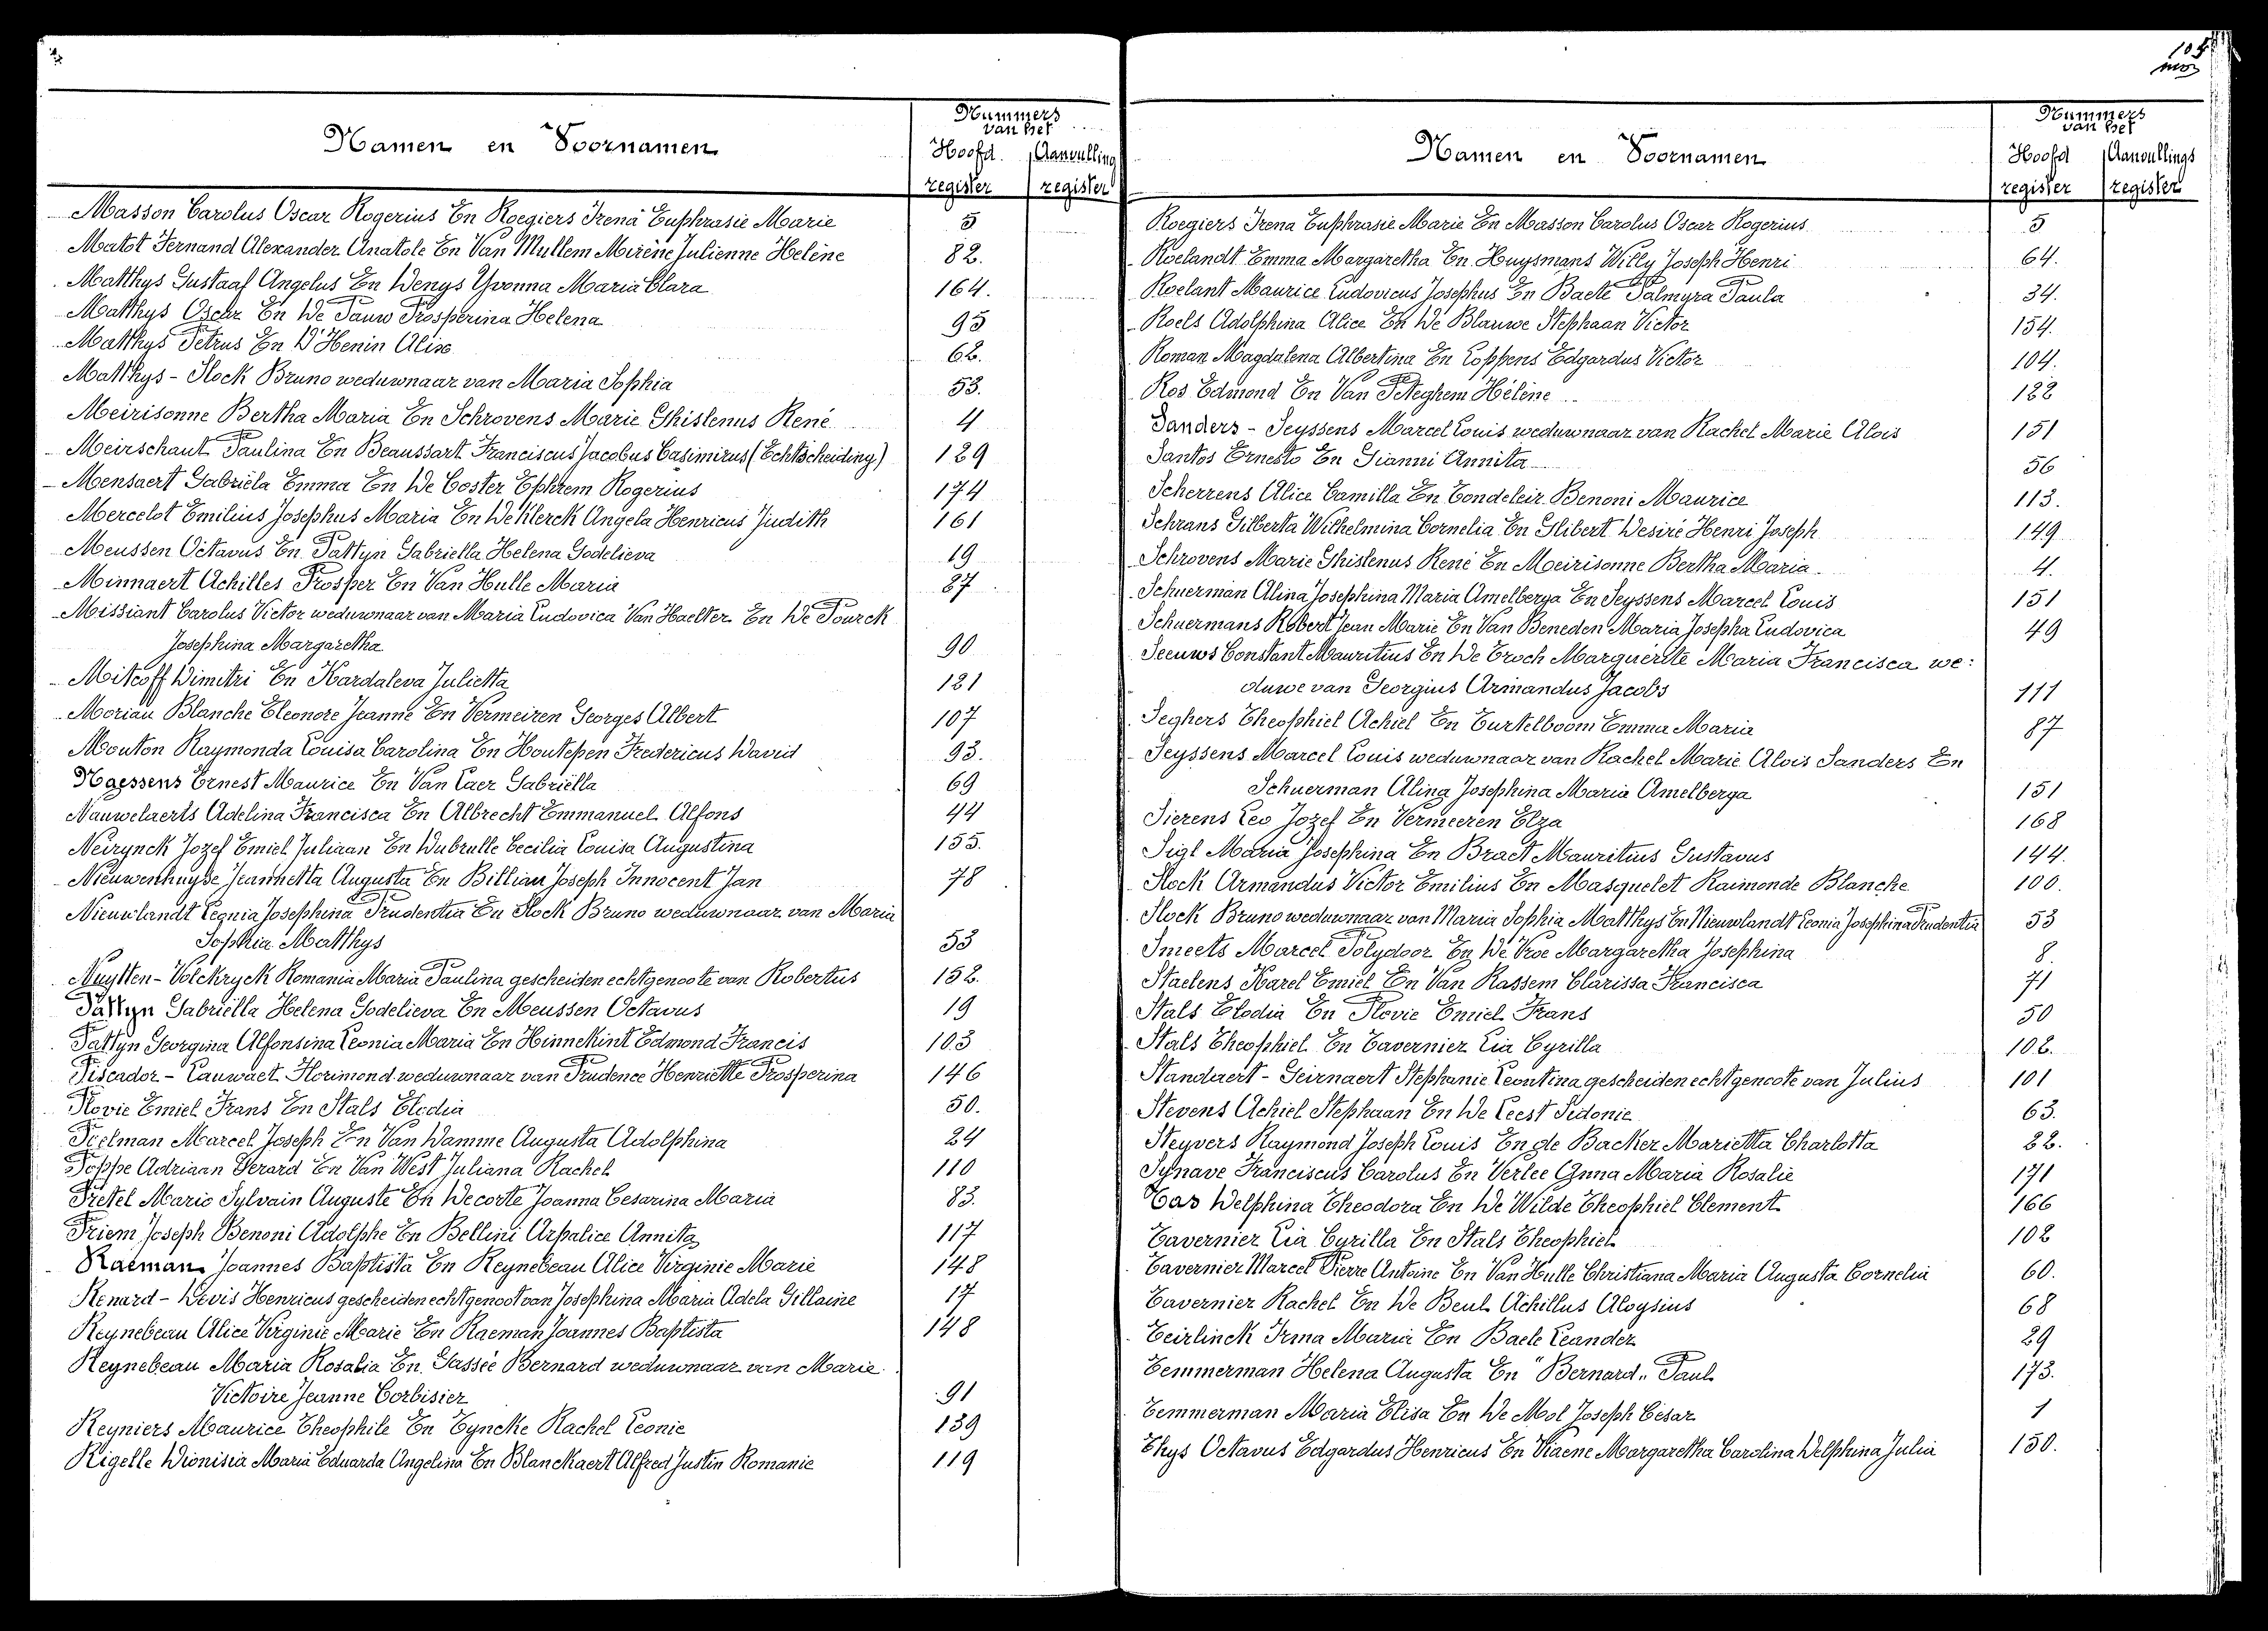 Namen en Voornamen
Nummers
van het
Hoofd. Aanvulling
register register
Masson Carolus Oscar Rogerius En Roegiers Irena Euphrasie Marie 5
Matot Fernand Alexander Anatole En Van Mullem Mirène Julienne Helène 82.
Matthys Gustaaf Angelus En Denys Yvonna Maria Clara 164.
Matthys Oscar En De Pauw Prosperina Helena 95
Matthys Petrus En D'Henin Alise 62.
Matthys - Slock Bruno weduwnaar van Maria Sophia 53.
Meirisonne Bertha Maria En Schrovens Marie Ghislenus René 4
Meirschaut Paulina En Beaussart Franciscus Jacobus Casimirus (Echtscheiding) 129
Mensaert Gabriëla Emma En De Coster Ephrem Rogerius 174
Mercelot Emilius Josephus Maria En De Klerck Angela Henricus Judith 161
Meussen Octavus En Pattyn Gabriella Helena Godelieva 19
Minnaert Achilles Prosper En Van Hulle Maria 87
Missiant Carolus Victor weduwnaar van Maria Ludovica Van Haelter En De Pourck
Josephina Margaretha 90
Mitcoff Dimitri En Kardaleva Julietta 121
Moriau Blanche Eleonore Jeanne En Vermeiren Georges Albert 107
Mouton Raymonda Louisa Carolina En Houtepen Fredericus David 93.
Naessens Ernest Maurice En Van Laer Gabriëlla 69
Nauwelaerts Adelina Francisca En Albrecht Emmanuel Alfons 44
Neirynck Jozef Emiel Juliaan En Dubrulle Cecilia Louisa Augustina 155.
Nieuwenhuyse Jeannetta Augusta En Billiau Joseph Innocent Jan 78
Nieuwlandt Leonia Josephina Prudentia En Slock Bruno weduwnaar van Maria
Sophia Matthys 53
Nuytten - Volckryck Romania Maria Paulina gescheiden echtgenoote van Robertus 152.
Pattyn Gabriëlla Helena Godelieva En Meussen Octavus 19
Pattyn Georgina Alfonsina Leonia Maria En Hinnekint Edmond Francis 103
Piscador - Lauwaet Florimond weduwnaar van Prudence Henriette Prosperina 146
Plovie Emiel Frans En Stals Elodia 50.
Poelman Marcel Joseph En Van Damme Augusta Adolphina 24
Poppe Adriaan Gerard En Van West Juliana Rachel 110
Pretel Mario Sylvain Auguste En Decorte Joanna Cesarina Maria 83.
Priem Joseph Benoni Adolphe En Bellini Arpalice Annita 117
Raeman Joannes Baptista En Reynebeau Alice Virginie Marie 148
Renard - Devis Henricus gescheiden echtgenoot van Josephina Maria Adela Gillaine 17
Reynebeau Alice Virginie Marie En Raeman Joannes Baptista 148
Reynebeau Maria Rosalia En Gassée Bernard weduwnaar van Marie
Victoire Jeanne Corbisier 91
Reyniers Maurice Theophile En Tyncke Rachel Leonie 139
Rigelle Dionisia Maria Eduarda Angelina En Blanckaert Alfred Justin Romanie 119
Namen en Voornamen
Nummers
van het
Hoofd Aanvullings
register register
Roegiers Irena Euphrasie Marie En Masson Carolus Oscar Rogerius 5
Roelandt Emma Margaretha En Huysmans Willy Joseph Henri 64.
Roelant Maurice Ludovicus Josephus En Baele Palmyra Paula 34.
Roels Adolphina Alice En De Blauwe Stephaan Victor 154.
Roman Magdalena Albertina En Coppens Edgardus Victor 104.
Ros Edmond En Van Peteghem Hélène 122
Sanders - Seyssens Marcel Louis weduwnaar van Rachel Marie Alois 151
Santos Ernesto En Gianni Annita 56
Scherrens Alice Camilla En Tondeleir Benoni Maurice 113.
Schrans Gilberta Wilhelmina Cornelia En Glibert Desiré Henri Joseph 149
Schrovens Marie Ghislenus René En Meirisonne Bertha Maria 4.
Schuerman Alina Josephina Maria Amelberga En Seyssens Marcel Louis 151
Schuermans Robert Jean Marie En Van Beneden Maria Josepha Ludovica 49
Seeuws Constant Mauritius En De Troch Marguerite Maria Francisca we:
duwe van Georgius Armandus Jacobs 111
Seghers Theophiel Achiel En Turtelboom Emma Maria 87
Seyssens Marcel Louis weduwnaar van Rachel Marie Alois Sanders En
Schuerman Alina Josephina Maria Amelberga 151
Sierens Leo Jozef En Vermeeren Elza 168
Sigl Maria Josephina En Bract Mauritius Gustavus 144.
Slock Armandus Victor Emilius En Masquelet Raimonde Blanche 100.
Slock Bruno weduwnaar van Maria Sophia Matthys En Nieuwlandt Leonia Josephina Prudentia 53
Smeets Marcel Polydoor En De Vroe Margaretha Josephina 8.
Staelens Karel Emiel En Van Rassem Clarissa Francisca 71
Stals Elodia En Plovie Emiel Frans 50
Stals Theophiel En Tavernier Lia Cyrilla 102.
Standaert - Geirnaert Stephanie Leontina gescheiden echtgenoote van Julius 101
Stevens Achiel Stephaan En De Leest Sidonie 63.
Steyvers Raymond Joseph Louis En de Backer Marietta Charlotta 22.
Synave Franciscus Carolus En Verlee Anna Maria Rosalie 171
Tas Delphina Theodora En De Wilde Theophiel Clement 166
Tavernier Lia Cyrilla En Stals Theophiel 102
Tavernier Marcel Pierre Antoine En Van Hulle Christiana Maria Augusta Cornelia 60.
Tavernier Rachel En De Beul Achillus Aloysius 68
Teirlinck Irma Maria En Baele Leander 29
Temmerman Helena Augusta En "Bernard" Paul 173.
Temmerman Maria Elisa En De Mol Joseph César 1
Thys Octavus Edgardus Henricus En Viaene Margaretha Carolina Delphina Julia 150.